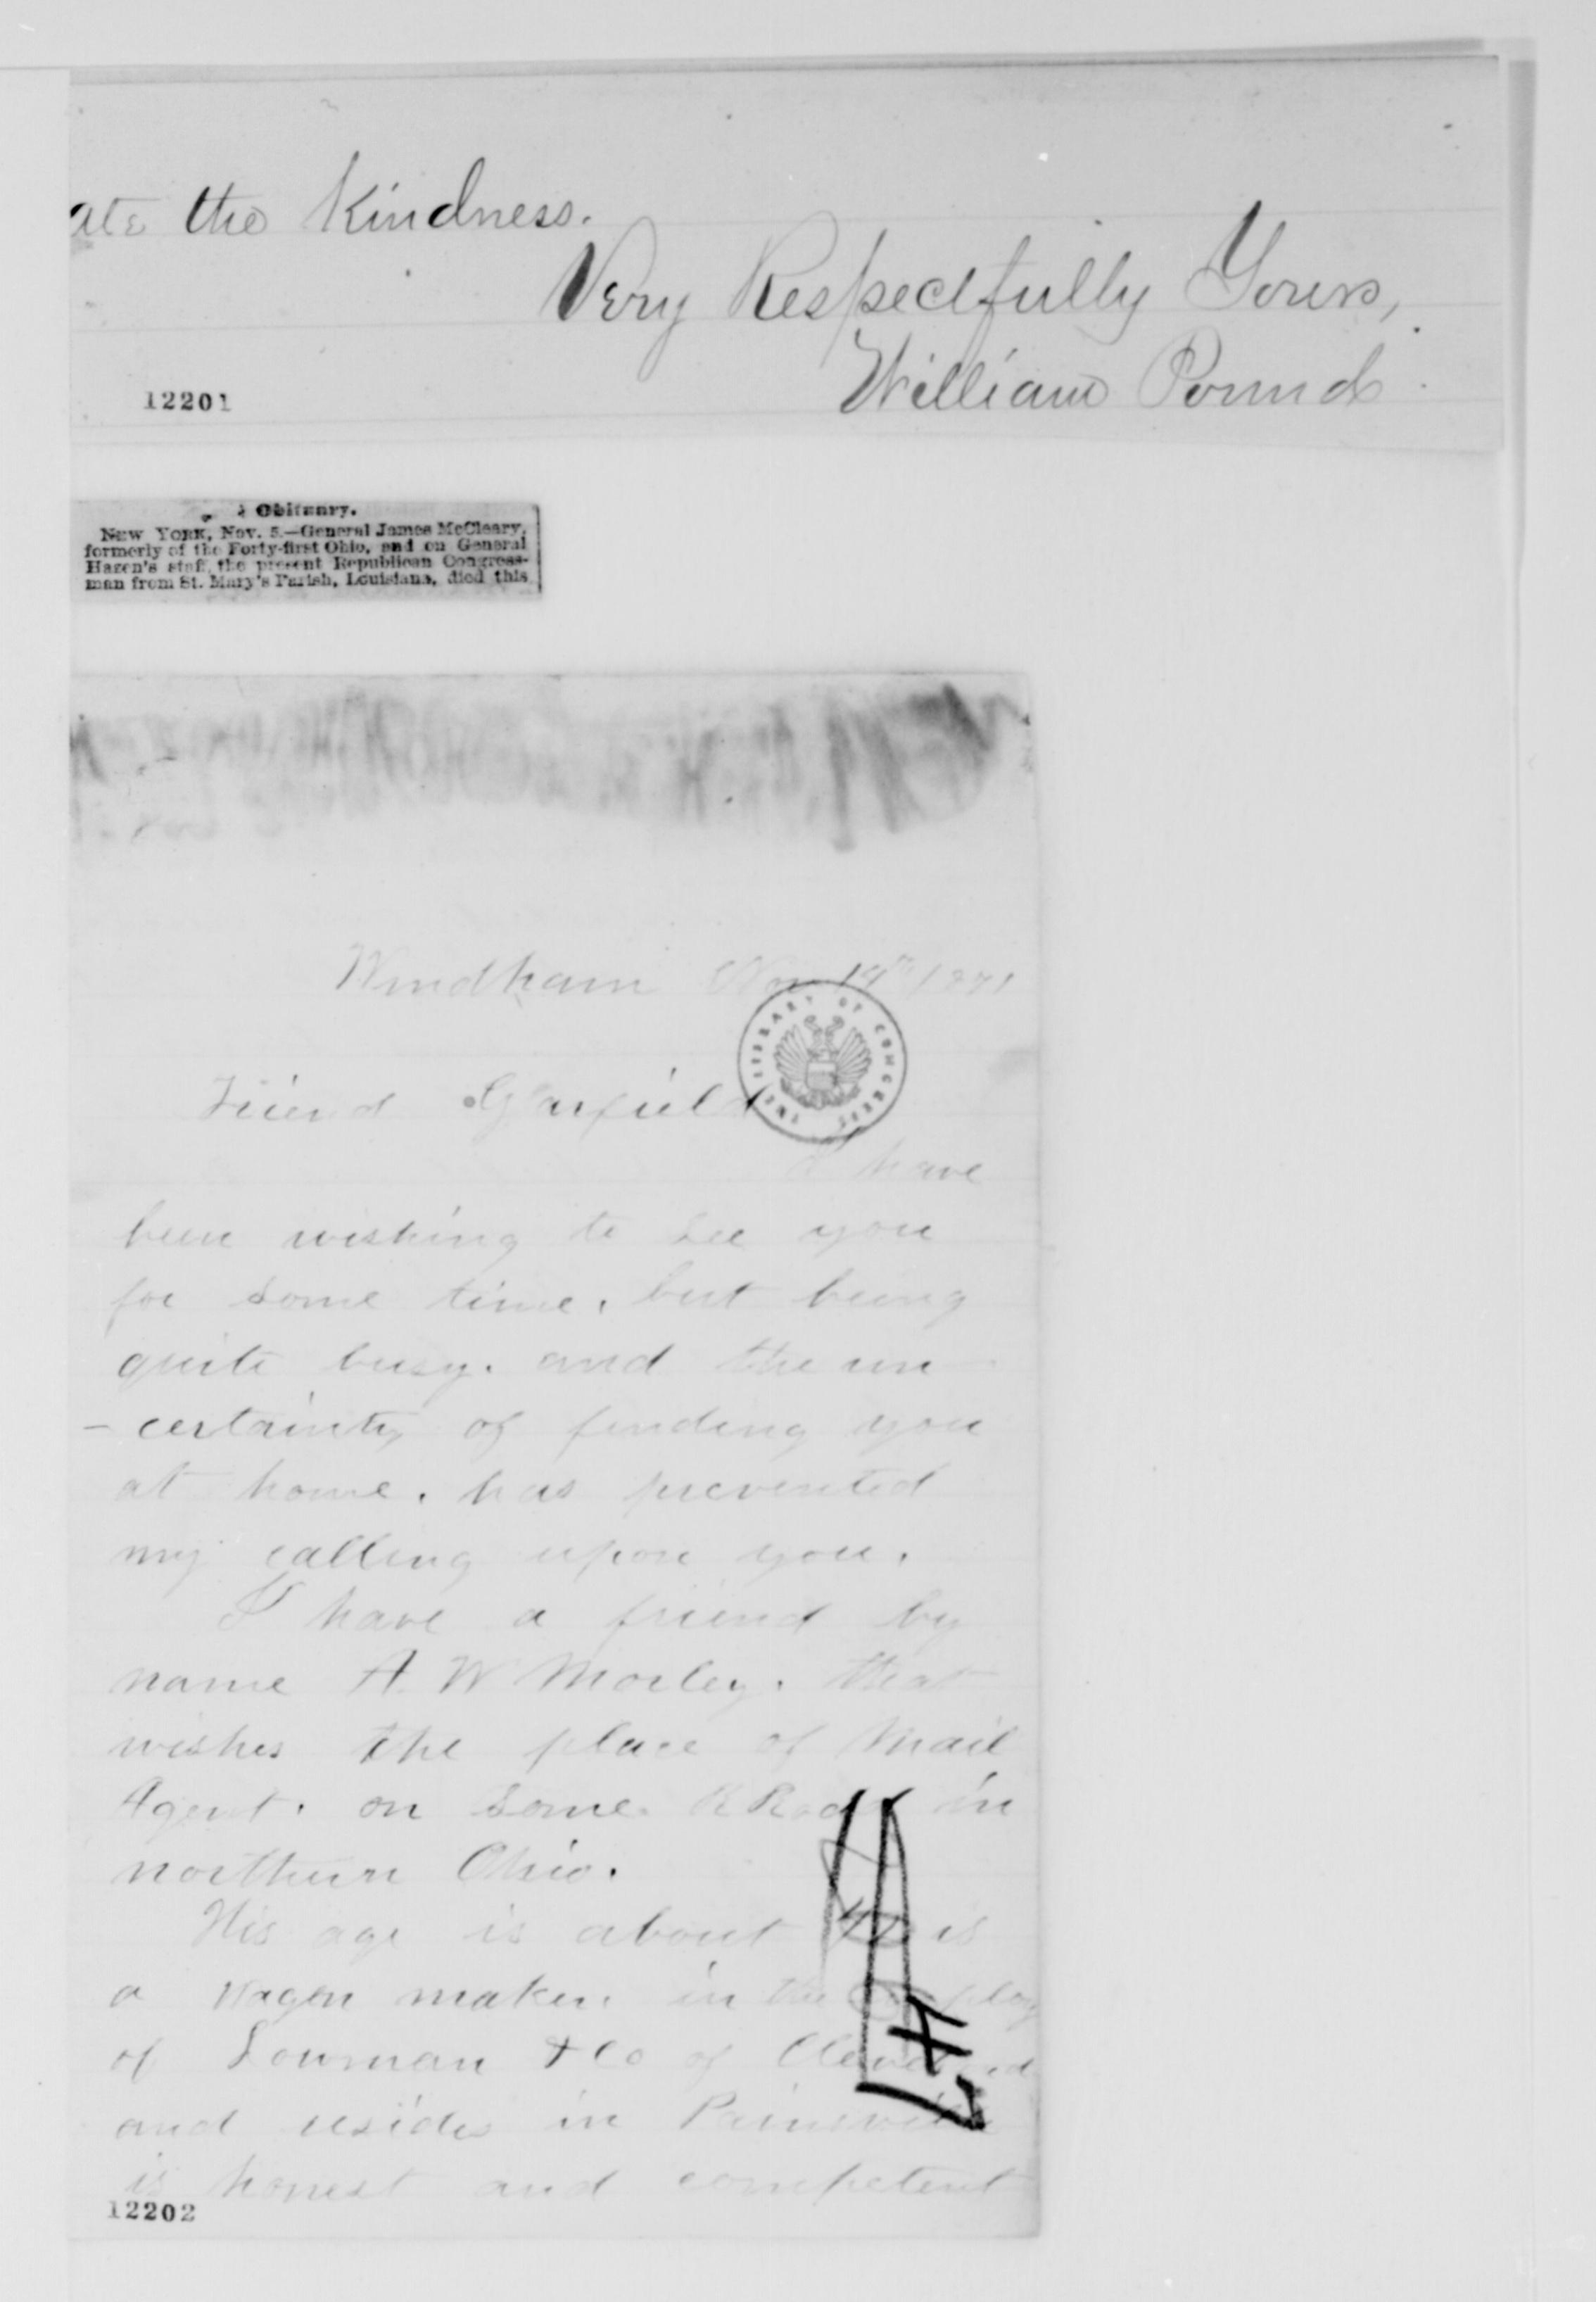 ate the Kindness.
Very Respectfully Yours,
William Pound
12201
Obituary.
NEW YORK, Nov. 5.—General James McCleary,
formerly of the Forty-first Ohio, and on General
Hazen's staff, the present Republican Congress-
man from St. Mary's Parish, Louisiana, died this
Windham Nov 19th 1871
THE LIBRARY OF CONGRESS
Friend Garfield
I have
been wishing to see you
for some time, but being
quite busy. and the un
- certainty of finding you
at home. has prevented
my calling upon you.
I have a friend by
name A. W Morley. that
wishes the place of Mail
Agent. on some R Road in
northern Ohio.
His age is about is
a wagon maker. in the employ
of Lowman & Co of Cleveland
and resides in Painesville
is honest and competent
12202